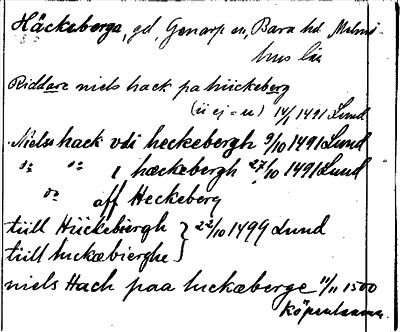 Häckeberga, gd, Genarp sn, Bara hd. Malmö-
hus län
Riddare niels hack pa hückeberg
(ü ej = u) 14/1 1491 Lund
Niels hack vdi heckebergh 9/10 1491 Lund
do do i hæckebergh 27/10 1491 Lund
do aff Heckeberg
tiill Hückebiergh } 22/10 1499 Lund
tiill huckæbierghe
niels Hack paa huckæberge 11/11 1500
Köpenhamn.